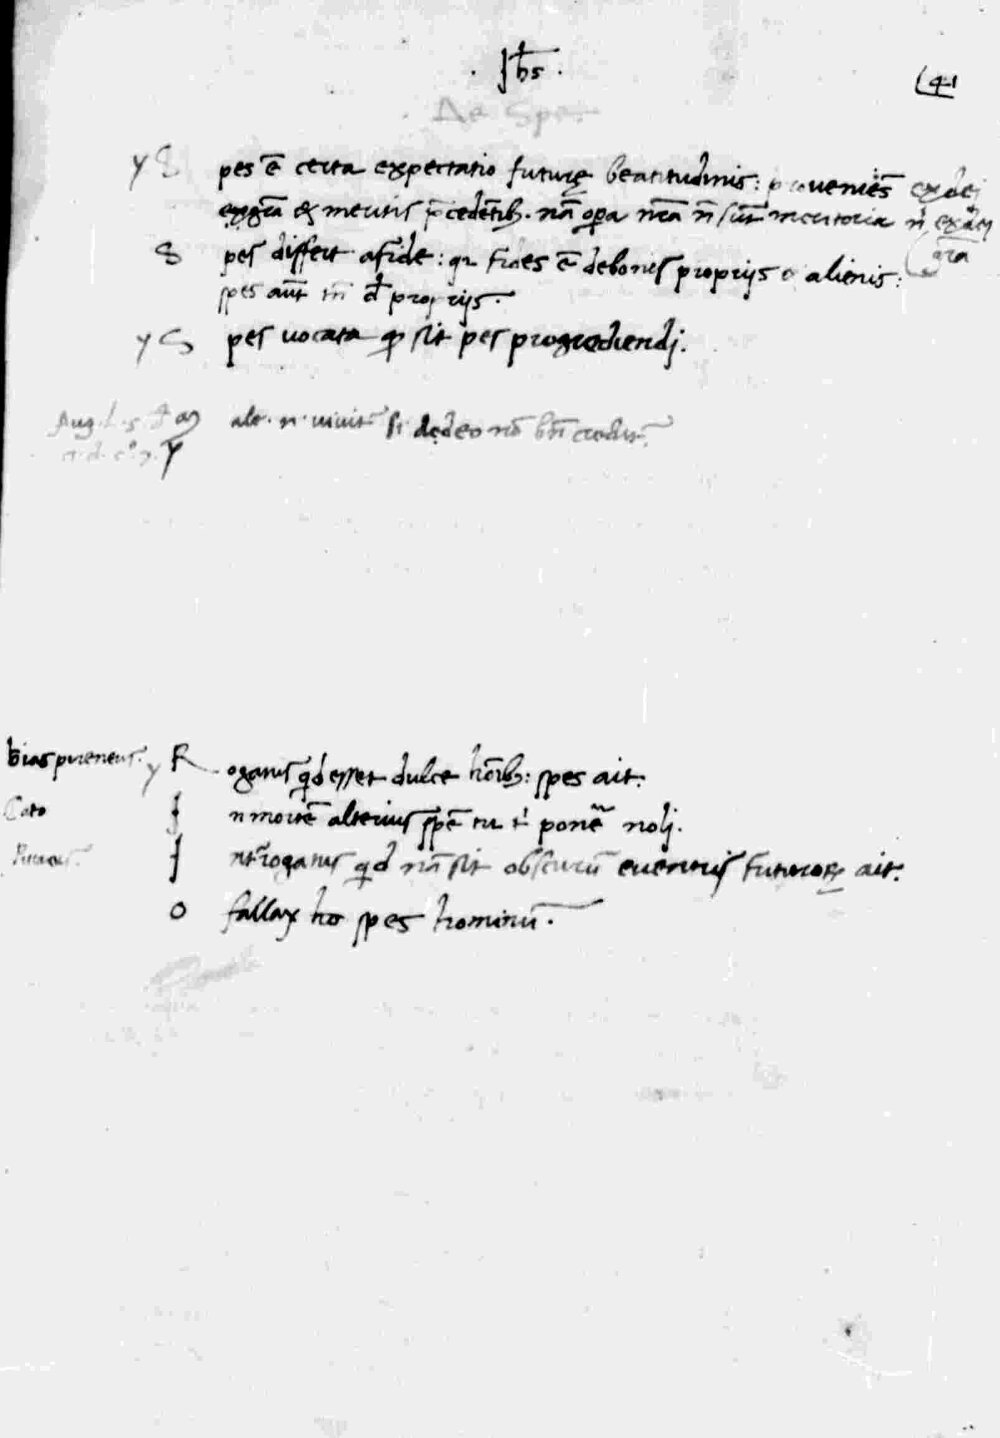 . Jħs .
41
De Spe.
y S pes ē certa expectatio futurę beatitudinis: proueniēs ex dei
ex grā & meritis p̄cedētib3. nā oꝑa nrā nō sūt meritoria nī ex dei
grā
S pes differt a fide: qr fides ē de bonis proprijs & alienis:
spes aūt tm̄ d̄ proprijs.
y S pes uocata ꝙ sit pes progrediendj.
Aug. L. 5 ale. n. uiuit si de deo nō bn̄ credit.
bias pireneus. y R ogatus qd esset dulce hōib3: spes ait.
Cato J n mortē alterius spē tu t' ponē nolj.
J nt'rogatus qd nā sit obscurū euentus futuroꝝ ait.
O fallax ho spes hominū.